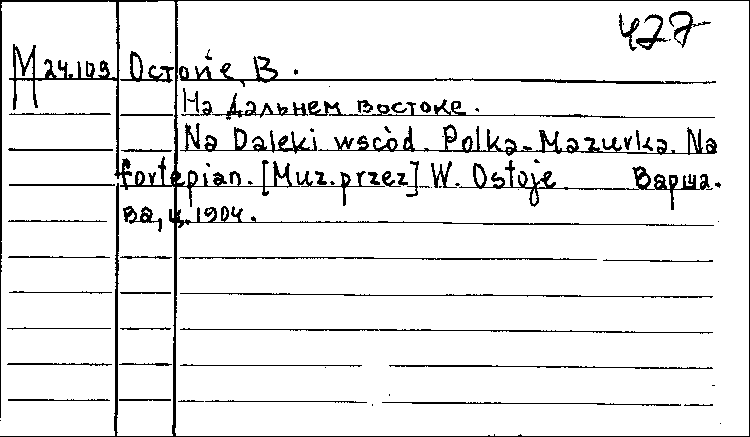 427
М 24.109. Остойе, В.
На Дальнем Востоке.
Na Daleki wscòd. Polka-Mazurka. Na
fortepian. [Muz. przez] W. Ostoje. Варша-
ва, ц. 1904.